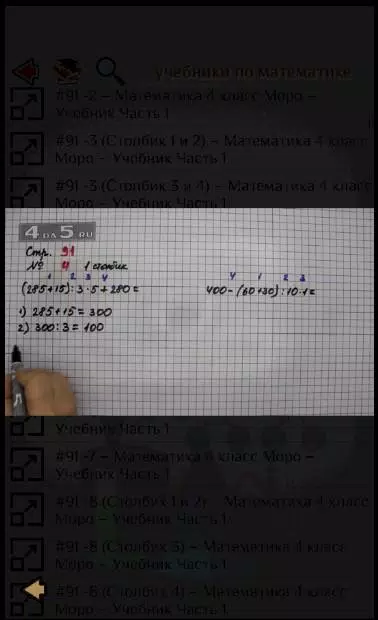 учебники по математике
#91 -2 – Математика 4 класс Моро –
Учебник Часть 1
#91 -3 (Столбик 1 и 2) – Математика 4 класс
Моро – Учебник Часть 1
#91 -3 (Столбик 3 и 4) – Математика 4 класс
Моро – Учебник Часть 1
4 DA 5.RU
Стр. 91
№ 4 1 столбик
1 2 3 4
(285+15):3·5+280=
4 1 2 3
400-(60+30):10·1=
1) 285+15=300
2) 300:3=100
Учебник Часть 1
#91 -7 – Математика 4 класс Моро –
Учебник Часть 1
#91 -8 (Столбик 1 и 2) – Математика 4 класс
Моро – Учебник Часть 1
#91 -8 (Столбик 3) – Математика 4 класс
Моро – Учебник Часть 1
#91 -8 (Столбик 4) – Математика 4 класс
Моро – Учебник Часть 1